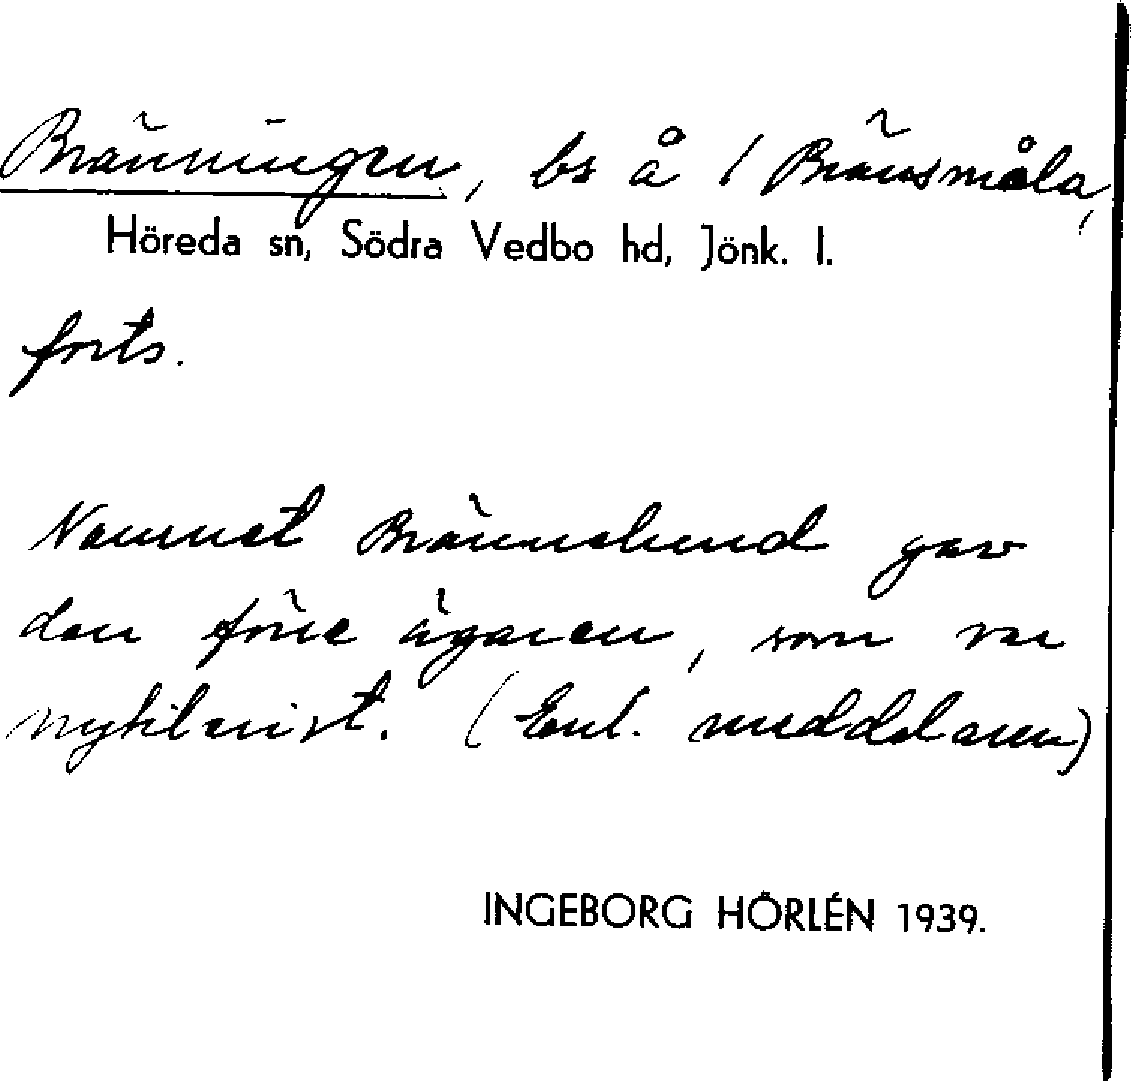 Bränningen, bs å 1 Bränsmåla,
Höreda sn, Södra Vedbo hd, Jönk. l.
forts.
Namnet Brännelund gav
den förre ägaren, som var
nykterist. (Enl. meddelaren)
INGEBORG HÖRLÉN 1939.